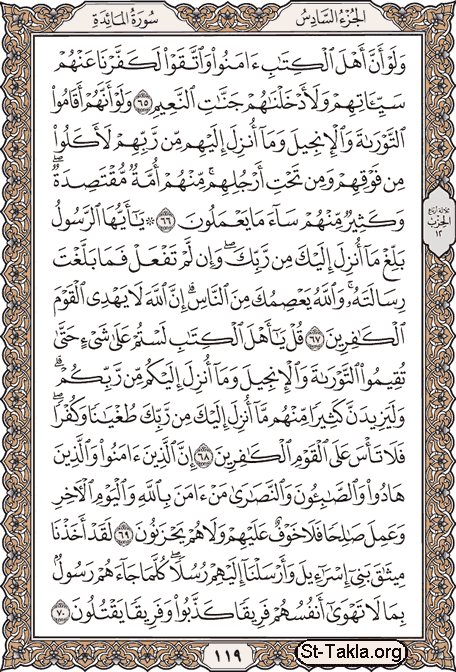 الجزء السادس
سورة المائدة
وَلَوْ أَنَّ أَهْلَ ٱلْكِتَٰبِ ءَامَنُوا۟ وَٱتَّقَوْا۟ لَكَفَّرْنَا عَنْهُمْ
سَيِّـَٔاتِهِمْ وَلَأَدْخَلْنَٰهُمْ جَنَّٰتِ ٱلنَّعِيمِ ٦٥ وَلَوْ أَنَّهُمْ أَقَامُوا۟
ٱلتَّوْرَىٰةَ وَٱلْإِنجِيلَ وَمَآ أُنزِلَ إِلَيْهِم مِّن رَّبِّهِمْ لَأَكَلُوا۟
مِن فَوْقِهِمْ وَمِن تَحْتِ أَرْجُلِهِم ۚ مِّنْهُمْ أُمَّةٌ مُّقْتَصِدَةٌ ۖ
وَكَثِيرٌ مِّنْهُمْ سَآءَ مَا يَعْمَلُونَ ٦٦ ۞ يَٰٓأَيُّهَا ٱلرَّسُولُ
بَلِّغْ مَآ أُنزِلَ إِلَيْكَ مِن رَّبِّكَ ۖ وَإِن لَّمْ تَفْعَلْ فَمَا بَلَّغْتَ
رِسَالَتَهُۥ ۚ وَٱللَّهُ يَعْصِمُكَ مِنَ ٱلنَّاسِ ۗ إِنَّ ٱللَّهَ لَا يَهْدِى ٱلْقَوْمَ
ٱلْكَٰفِرِينَ ٦٧ قُلْ يَٰٓأَهْلَ ٱلْكِتَٰبِ لَسْتُمْ عَلَىٰ شَىْءٍ حَتَّىٰ
تُقِيمُوا۟ ٱلتَّوْرَىٰةَ وَٱلْإِنجِيلَ وَمَآ أُنزِلَ إِلَيْكُم مِّن رَّبِّكُمْ ۗ
وَلَيَزِيدَنَّ كَثِيرًا مِّنْهُم مَّآ أُنزِلَ إِلَيْكَ مِن رَّبِّكَ طُغْيَٰنًا وَكُفْرًا ۖ
فَلَا تَأْسَ عَلَى ٱلْقَوْمِ ٱلْكَٰفِرِينَ ٦٨ إِنَّ ٱلَّذِينَ ءَامَنُوا۟ وَٱلَّذِينَ
هَادُوا۟ وَٱلصَّٰبِـُٔونَ وَٱلنَّصَٰرَىٰ مَنْ ءَامَنَ بِٱللَّهِ وَٱلْيَوْمِ ٱلْءَاخِرِ
وَعَمِلَ صَٰلِحًا فَلَا خَوْفٌ عَلَيْهِمْ وَلَا هُمْ يَحْزَنُونَ ٦٩ لَقَدْ أَخَذْنَا
مِيثَٰقَ بَنِىٓ إِسْرَٰٓءِيلَ وَأَرْسَلْنَآ إِلَيْهِمْ رُسُلًا ۖ كُلَّمَا جَآءَهُمْ رَسُولٌۢ
بِمَا لَا تَهْوَىٰٓ أَنفُسُهُمْ فَرِيقًا كَذَّبُوا۟ وَفَرِيقًا يَقْتُلُونَ ٧٠
الحزب
١٢
١١٩
St-Takla.org